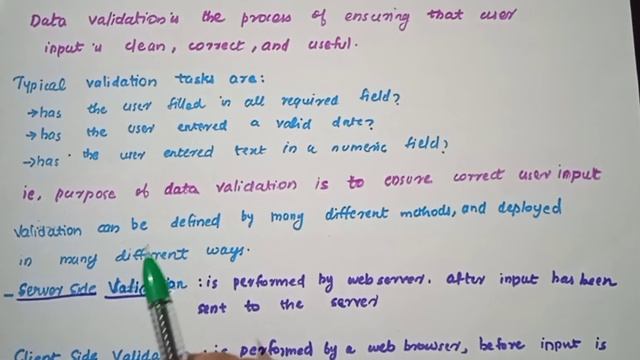 Data validation is the process of ensuring that user
input is clean, correct, and useful.
Typical validation tasks are:
→has the user filled in all required field?
→has the user entered a valid date?
→has the user entered text in a numeric field?
ie, purpose of data validation is to ensure correct user input
Validation can be defined by many different methods, and deployed
in many different ways.
- Server side Validation : is performed by web server. after input has been
sent to the server
Client Side : is performed by a web browser, before input is